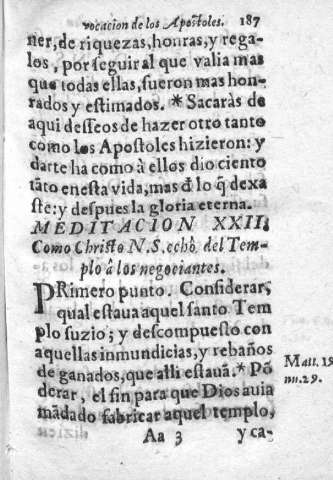 vocacion de los Apostoles. 187
ner, de riquezas, honras, y rega-
los, por seguir al que valia mas
que todas ellas, fueron mas hon-
rados y estimados. * Sacaràs de
aqui desseos de hazer otro tanto
como los Apostoles hizieron: y
darte ha como à ellos dio ciento
tãto enesta vida, mas ď lo q̃ dexa
ste: y despues la gloria eterna.
MEDITACION XXII.
Como Christo N. S. echò del Tem-
plo â los negociantes.
PRimero punto. Considerar,
qual estaua aquel santo Tem
plo suzio; y descompuesto con
aquellas inmundicias, y rebaños
de ganados, que alli estauã. * Põ
derar, el fin para que Dios auia
mãdado fabricar aquel templo,
Matt. 19
nu. 29.
Aa 3 y ca-